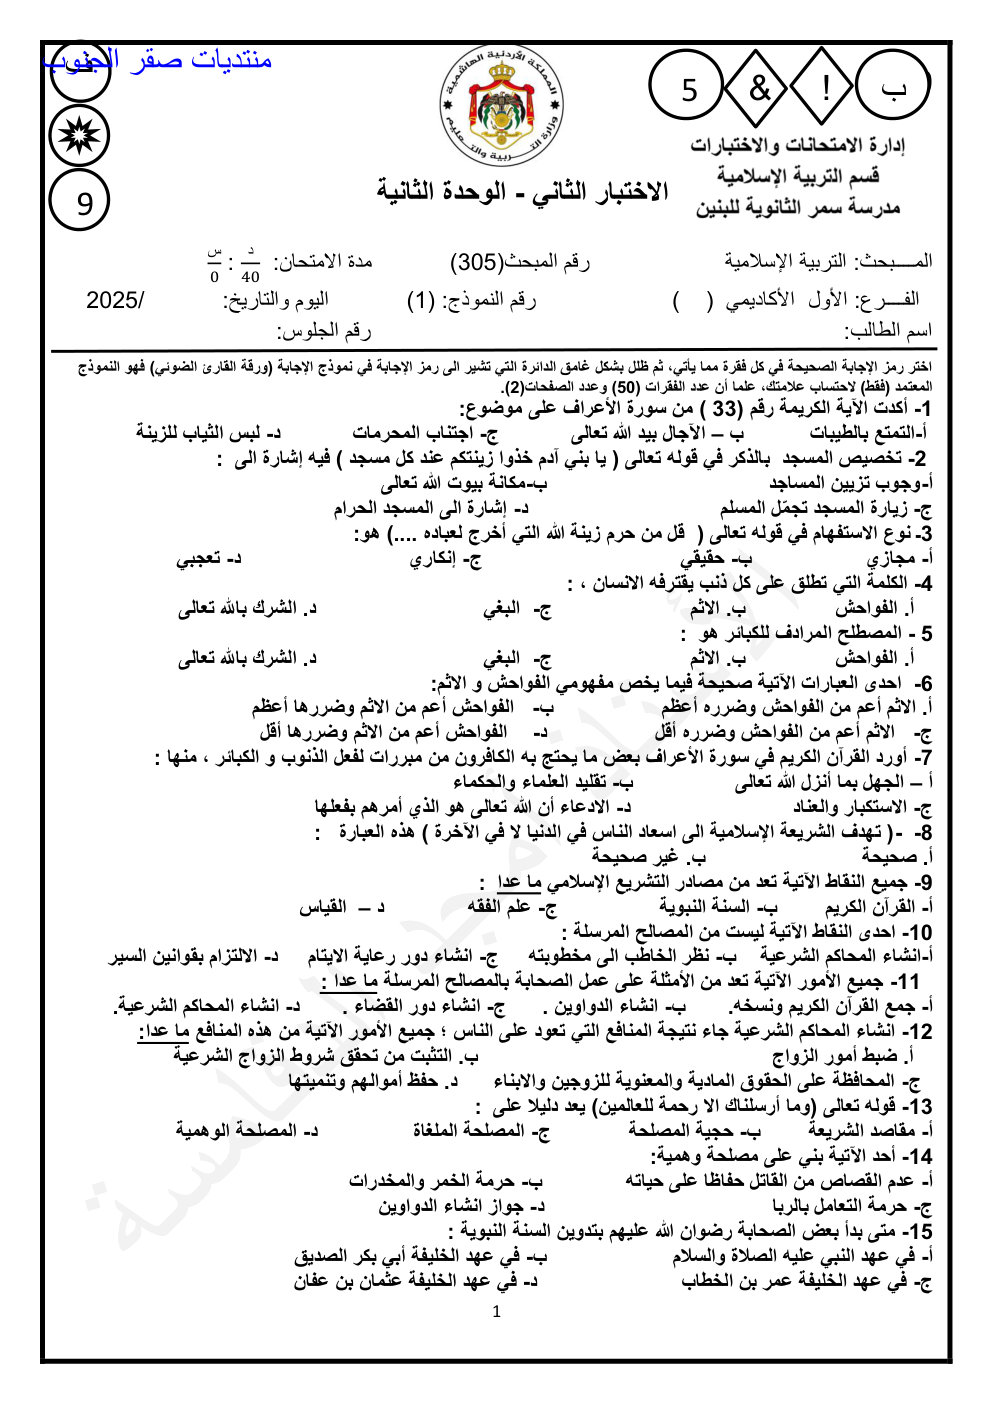 منتديات صقر الجنوب
ب ! & 5
9
المملكة الأردنية الهاشمية
وزارة التربية والتعليم
إدارة الامتحانات والاختبارات
قسم التربية الإسلامية
مدرسة سمر الثانوية للبنين
الاختبار الثاني - الوحدة الثانية
المـــبحث: التربية الإسلامية رقم المبحث(305) مدة الامتحان: د 40 : س 0
الفـــرع: الأول الأكاديمي ( ) رقم النموذج: (1) اليوم والتاريخ: /2025
اسم الطالب: رقم الجلوس:
اختر رمز الإجابة الصحيحة في كل فقرة مما يأتي، ثم ظلل بشكل غامق الدائرة التي تشير الى رمز الإجابة في نموذج الإجابة (ورقة القارئ الضوئي) فهو النموذج
المعتمد (فقط) لاحتساب علامتك، علما أن عدد الفقرات (50) وعدد الصفحات(2).
1- أكدت الآية الكريمة رقم (33 ) من سورة الأعراف على موضوع:
أ-التمتع بالطيبات ب – الآجال بيد الله تعالى ج- اجتناب المحرمات د- لبس الثياب للزينة
2- تخصيص المسجد بالذكر في قوله تعالى ( يا بني آدم خذوا زينتكم عند كل مسجد ) فيه إشارة الى :
أ-وجوب تزيين المساجد ب-مكانة بيوت الله تعالى
ج- زيارة المسجد تجمّل المسلم د- إشارة الى المسجد الحرام
3- نوع الاستفهام في قوله تعالى ( قل من حرم زينة الله التي أخرج لعباده ....) هو:
أ- مجازي ب- حقيقي ج- إنكاري د- تعجبي
4- الكلمة التي تطلق على كل ذنب يقترفه الانسان ، :
أ. الفواحش ب. الاثم ج- البغي د. الشرك بالله تعالى
5 - المصطلح المرادف للكبائر هو :
أ. الفواحش ب. الاثم ج- البغي د. الشرك بالله تعالى
6- احدى العبارات الآتية صحيحة فيما يخص مفهومي الفواحش و الاثم:
أ. الاثم أعم من الفواحش وضرره أعظم ب- الفواحش أعم من الاثم وضررها أعظم
ج- الاثم أعم من الفواحش وضرره أقل د- الفواحش أعم من الاثم وضررها أقل
7- أورد القرآن الكريم في سورة الأعراف بعض ما يحتج به الكافرون من مبررات لفعل الذنوب و الكبائر ، منها :
أ – الجهل بما أنزل الله تعالى ب- تقليد العلماء والحكماء
ج- الاستكبار والعناد د- الادعاء أن الله تعالى هو الذي أمرهم بفعلها
8- -( تهدف الشريعة الإسلامية الى اسعاد الناس في الدنيا لا في الآخرة ) هذه العبارة :
أ. صحيحة ب. غير صحيحة
9- جميع النقاط الآتية تعد من مصادر التشريع الإسلامي ما عدا :
أ- القرآن الكريم ب- السنة النبوية ج- علم الفقه د – القياس
10- احدى النقاط الآتية ليست من المصالح المرسلة :
أ-انشاء المحاكم الشرعية ب- نظر الخاطب الى مخطوبته ج- انشاء دور رعاية الايتام د- الالتزام بقوانين السير
11- جميع الأمور الآتية تعد من الأمثلة على عمل الصحابة بالمصالح المرسلة ما عدا :
أ- جمع القرآن الكريم ونسخه. ب- انشاء الدواوين . ج- انشاء دور القضاء . د- انشاء المحاكم الشرعية.
12- انشاء المحاكم الشرعية جاء نتيجة المنافع التي تعود على الناس ؛ جميع الأمور الآتية من هذه المنافع ما عدا:
أ. ضبط أمور الزواج ب. التثبت من تحقق شروط الزواج الشرعية
ج- المحافظة على الحقوق المادية والمعنوية للزوجين والابناء د. حفظ أموالهم وتنميتها
13- قوله تعالى (وما أرسلناك الا رحمة للعالمين) يعد دليلا على :
أ- مقاصد الشريعة ب- حجية المصلحة ج- المصلحة الملغاة د- المصلحة الوهمية
14- أحد الآتية بني على مصلحة وهمية:
أ- عدم القصاص من القاتل حفاظا على حياته ب- حرمة الخمر والمخدرات
ج- حرمة التعامل بالربا د- جواز انشاء الدواوين
15- متى بدأ بعض الصحابة رضوان الله عليهم بتدوين السنة النبوية :
أ- في عهد النبي عليه الصلاة والسلام ب- في عهد الخليفة أبي بكر الصديق
ج- في عهد الخليفة عمر بن الخطاب د- في عهد الخليفة عثمان بن عفان
1